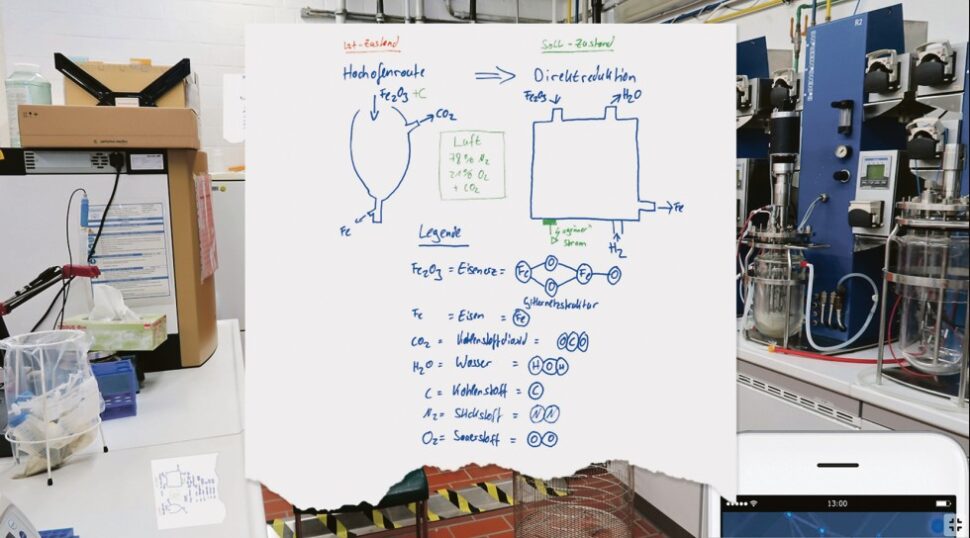 Ist-Zustand
Soll-Zustand
Hochofenroute ⇒ Direktreduktion
Fe₂O₃ +C
CO₂
Fe
Luft
78% N₂
21% O₂
+ CO₂
Fe₂O₃
H₂O
Fe
H₂
"grüner"
Strom
Legende
Fe₂O₃ = Eisenerz = Fe O O Fe O
Gitternetzstruktur
Fe = Eisen = Fe
CO₂ = Kohlenstoffdioxid = O C O
H₂O = Wasser = H O H
C = Kohlenstoff = C
N₂ = Stickstoff = N N
O₂ = Sauerstoff = O O
R2
13:00